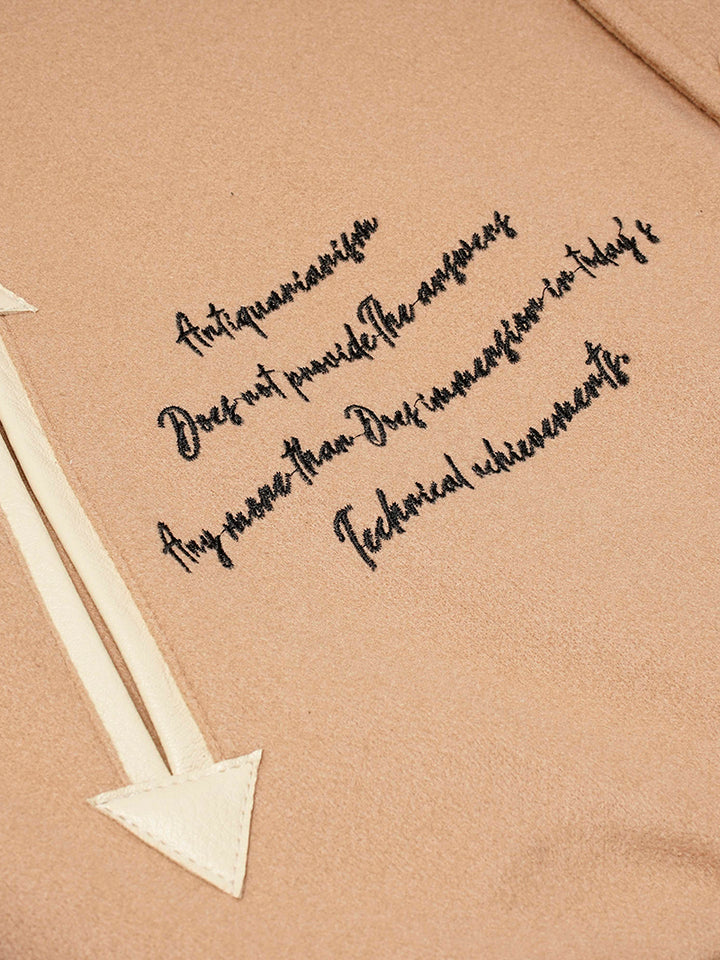 Antiquarianism
Does not provide The answers
Any more than Does immersion in today's
Technical achievements.